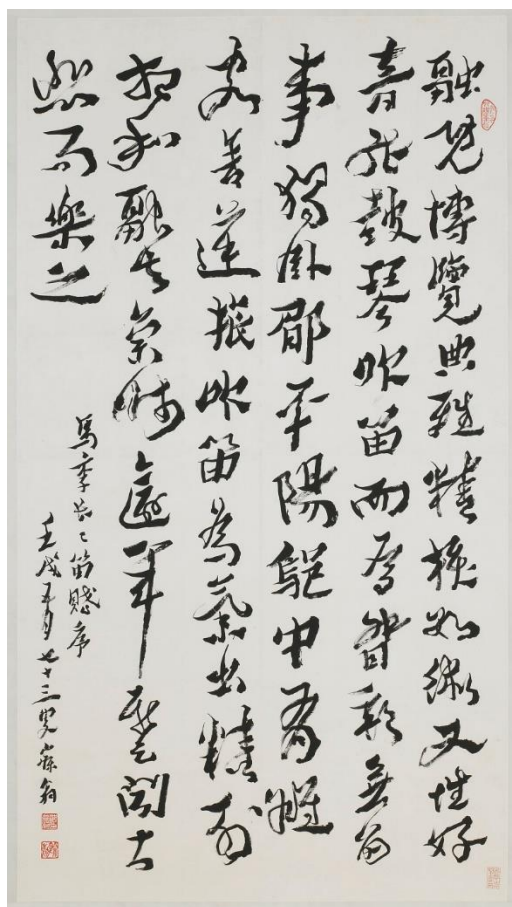 融既博覽典雅精核數術又性好
音能鼓琴吹笛而為督郵無留
事獨臥郿平陽鄔中有雒
客舍逆旅吹笛為氣出精列
相和融去京師逾年暫聞甚
悲而樂之
馬季長々笛賦序
壬戌五月七十三叟翁